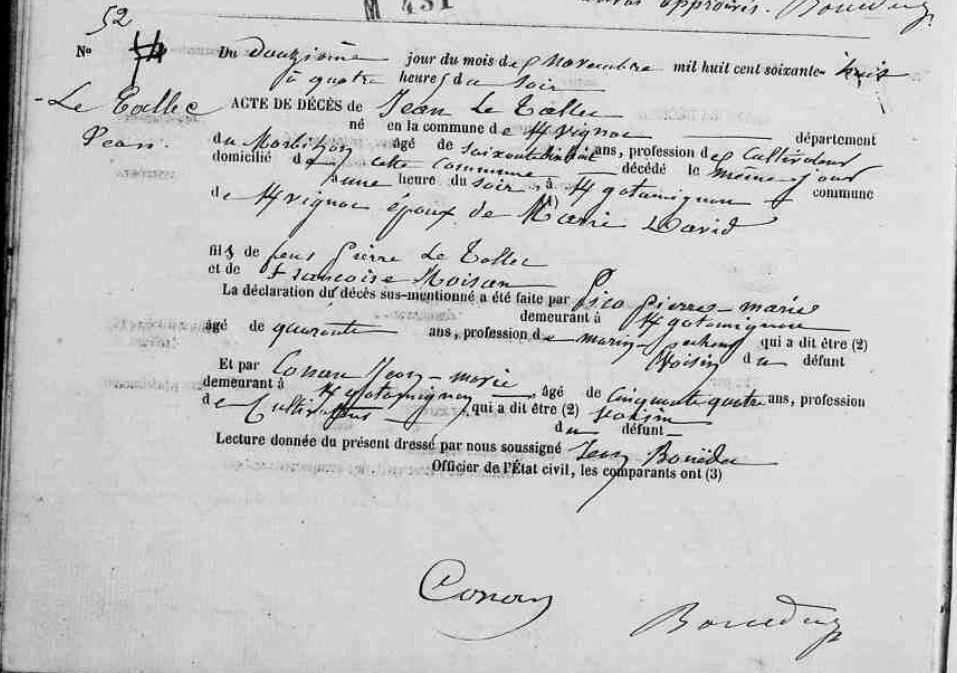 M 431
approuvés. Bouëdu
52
No 54 Du douzième jour du mois de novembre mil huit cent soixante-huit
à quatre heures du soir
Le Tallec Jean
ACTE DE DÉCÈS de Jean Le Tallec
né en la commune de département
du Morbihan âgé de soixante dix huit ans, profession de Cultivateur
domicilié de cette commune décédé le même jour
à une heure du soir, à commune
de époux de (1) Marie David
fils de feus Pierre Le Tallec
et de Francoise Moisan
La déclaration du décès sus-mentionné a été faite par Pico Pierre-marie
demeurant à
âgé de quarante ans, profession de marin-pecheur qui a dit être (2)
Voisin du défunt
Et par Conan Jean-marie âgé de cinquante quatre ans, profession
demeurant à
de Cultivateur, qui a dit être (2) voisin
du défunt
Lecture donnée du présent dressé par nous soussigné Jean Bouëdu
Officier de l'État civil, les comparants ont (3)
Conan
Bouëdu